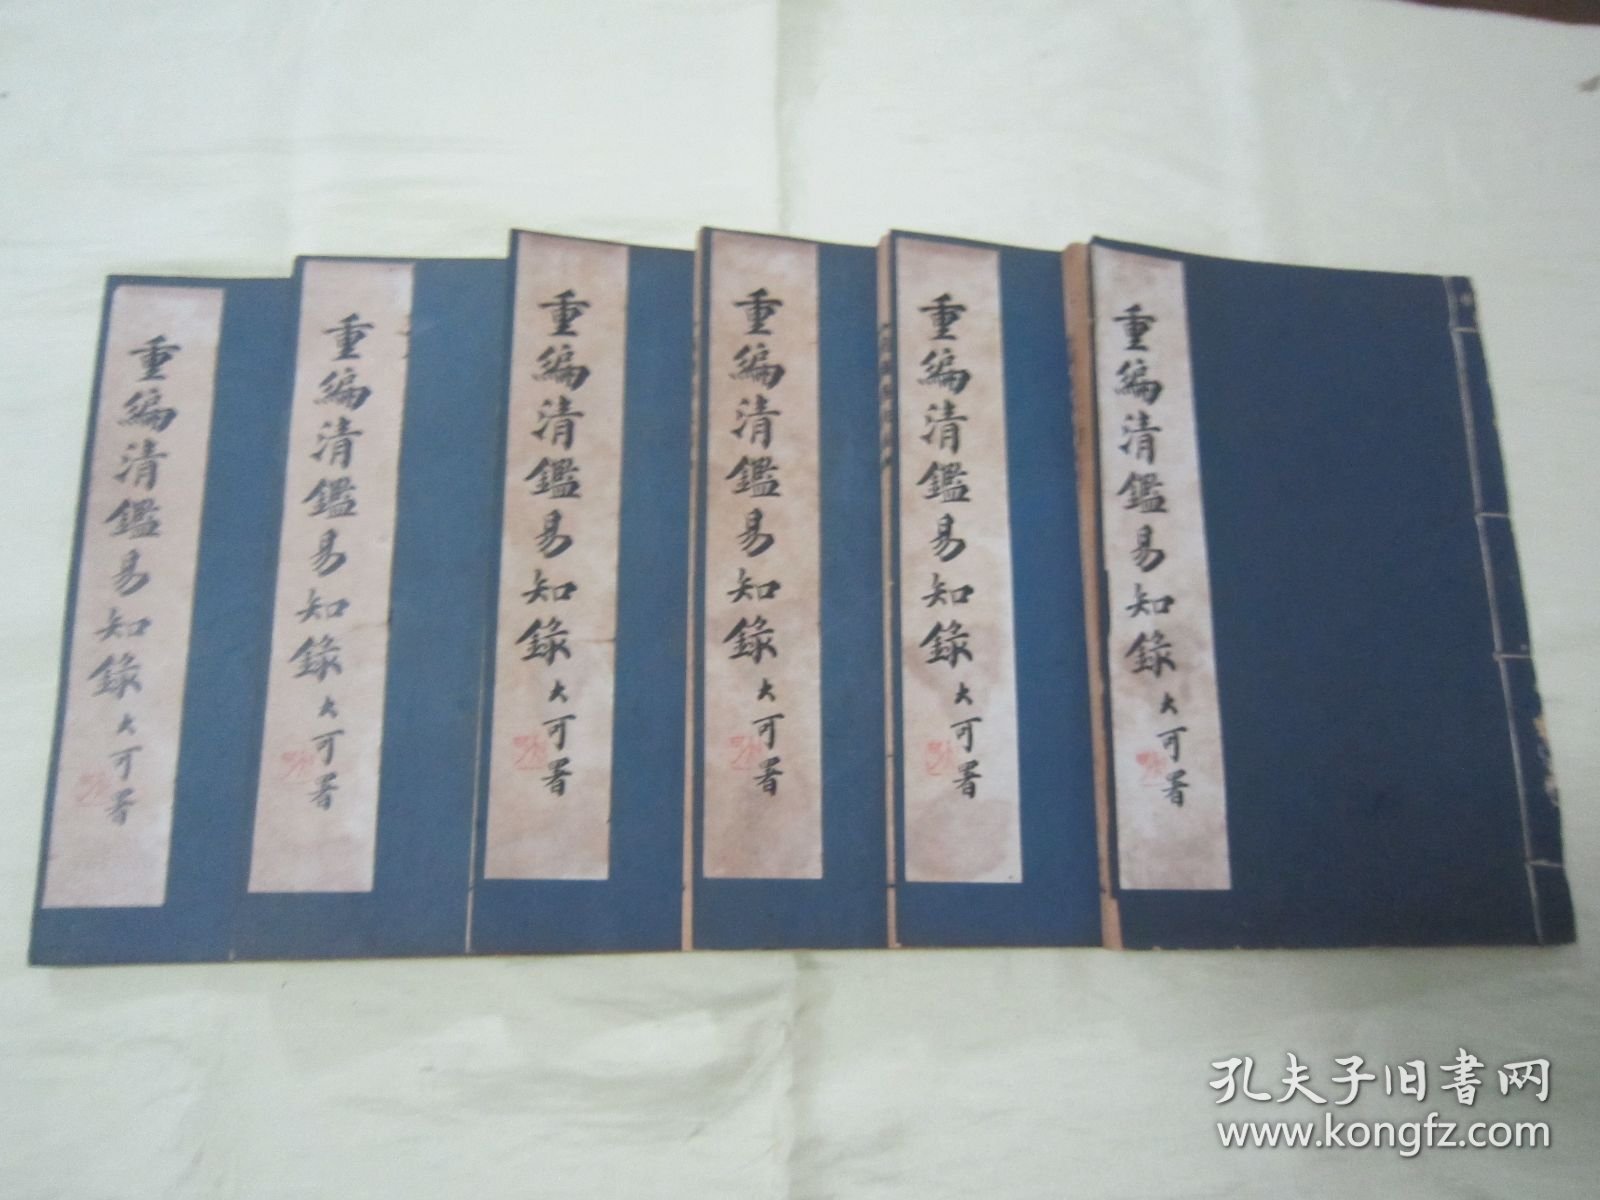 重編清鑑易知錄 大可署
重編清鑑易知錄 大可署
重編清鑑易知錄 大可署
重編清鑑易知錄 大可署
重編清鑑易知錄 大可署
重編清鑑易知錄 大可署
孔夫子旧书网
www.kongfz.com